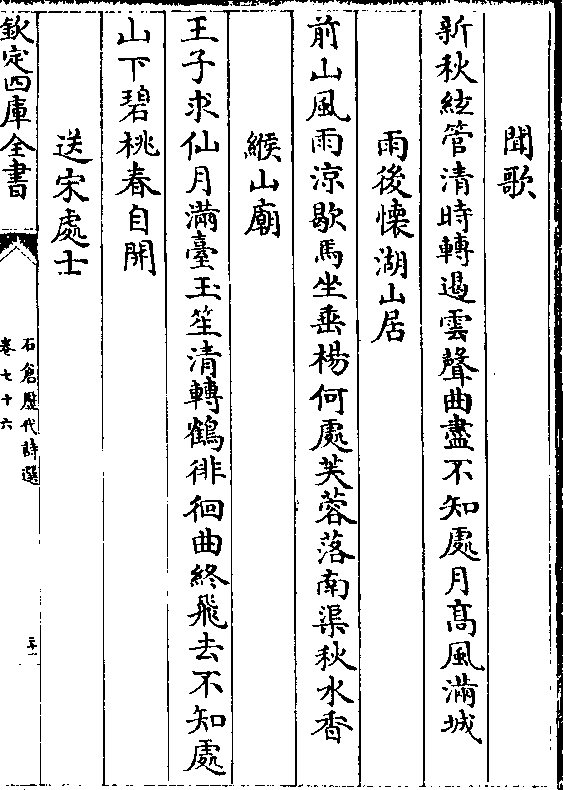 聞歌
新秋絃管清時轉遏雲聲曲盡不知處月髙風滿城
雨後懐湖山居
前山風雨涼歇馬坐垂楊何處芙蓉落南渠秋水香
緱山廟
王子求仙月滿臺玉笙清轉鶴徘徊曲終飛去不知處
山下碧桃春自開
送宋處士
欽定四庫全書
石倉歷代詩選
卷七十六